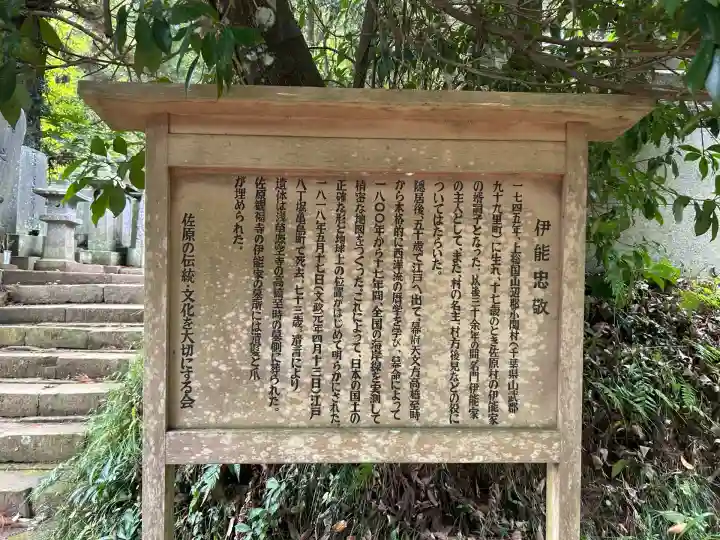 伊能忠敬
一七四五年、上総国山辺郡小関村(千葉県山武郡
九十九里町)に生れ、十七歳のとき佐原村の伊能家
の婿養子となった。以後三十余年の間名門伊能家
の主人として、また村の名主、村方後見などの役に
ついてはたらいた。
隠居後、五十歳で江戸へ出て、幕府天文方高橋至時
から本格的に西洋流の暦学を学び、幕命によって
一八〇〇年から十七年間、全国の海岸線を実測して
精密な地図をつくった。これによって、日本の国土の
正確な形と地球上の位置がはじめて明らかにされた。
一八一八年五月十七日(文政元年四月十三日)江戸
八丁堀亀島町で死去、七十三歳。遺言により
遺体は浅草源空寺の高橋至時の墓側に葬られた。
佐原観福寺の伊能家の墓所には遺髪と爪
が埋められた。
佐原の伝統 文化を大切にする会